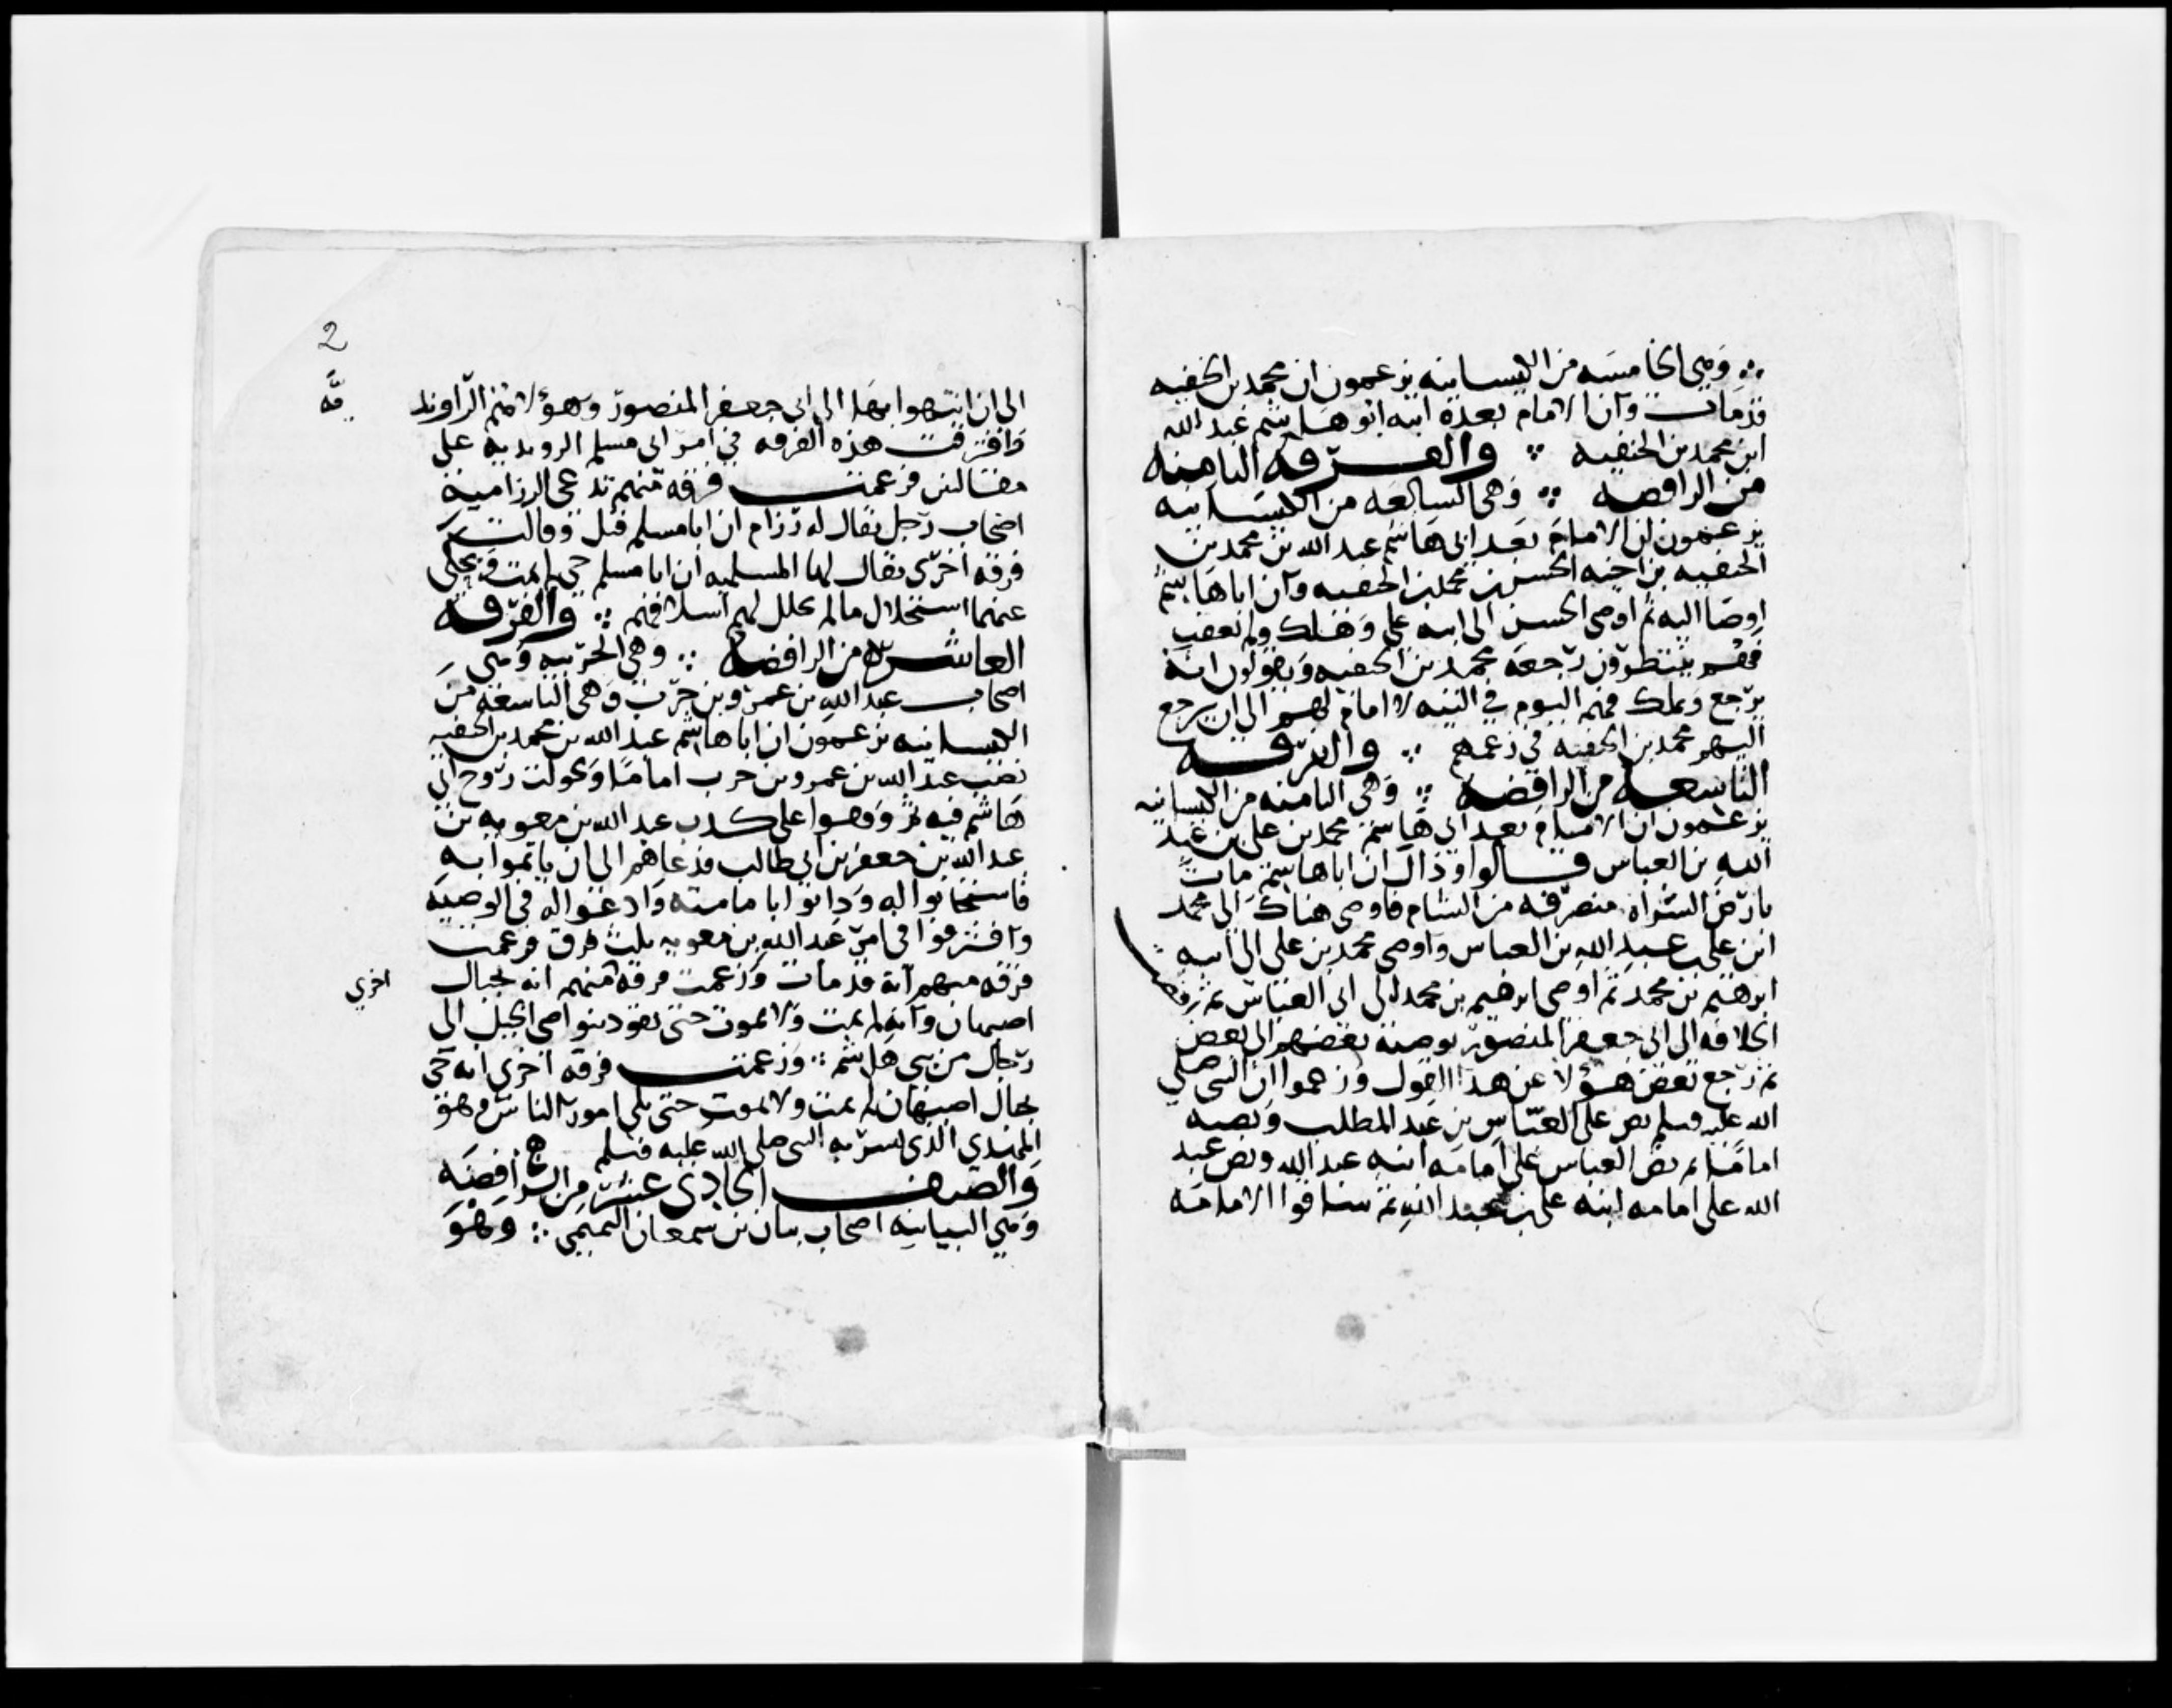 وهي الخامسه من الكيسانيه يزعمون ان محمد بن الحنفيه
قد مات وان الامام بعده ابنه ابو هاشم عبد الله
ابن محمد بن الحنفيه والفرقه الثامنه
من الرافضه وهي السابعه من الكيسانيه
يزعمون ان الامام بعد ابي هاشم عبد الله بن محمد بن
الحنفيه بن اخيه الحسن بن محمد بن الحنفيه وان ابا هاشم
اوصا اليه ثم اوصى الحسن الى ابنه علي وهلك ولم يعقب
فهم ينتظرون رجعه محمد بن الحنفيه ويقولون انه
يرجع ويملك فهم اليوم في التيه لا امام لهم الى ان يرجع
اليهم محمد بن الحنفيه في زعمهم والفرقه
التاسعه من الرافضه وهي الثامنه من الكيسانيه
يزعمون ان الامام بعد ابي هاشم محمد بن علي بن عبد
الله بن العباس قالوا وذاك ان ابا هاشم مات
بارض الشراه منصرفه من الشام فاوصى هناك الى محمد
ابن علي بن عبد الله بن العباس واوصى محمد بن علي الى ابنه
ابرهيم بن محمد ثم اوصى ابرهيم بن محمد الى ابي العباس ثم
الخلافه الى ابي جعفر المنصور بوصية بعضهم الى بعض
ثم رجع بعض هؤلا عن هذا القول وزعموا ان النبي صلى
الله عليه وسلم نص على العباس بن عبد المطلب ونصبه
اماما ثم نص العباس على امامه ابنه عبد الله ونص عبد
الله على امامه ابنه علي بن عبد الله ثم ساقوا الامامه
2
يه
الى ان انتهوا بها الى ابي جعفر المنصور وهؤلا هم الراوند
وافترقت هذه الفرقه في امر ابي مسلم الرونديه على
مقالتين فزعمت فرقه منهم تدعى الرزاميه
اصحاب رجل يقال له رزام ان ابا مسلم قتل وقالت
فرقه اخرى يقال لها المسلميه ان ابا مسلم حي لم يمت ويحكى
عنهما استحلال ما لم يحلل لهم اسلافهم والفرقه
العاشره من الرافضه وهي الحربيه وهي
اصحاب عبد الله بن عمرو بن حرب وهي التاسعه من
الكيسانيه يزعمون ان ابا هاشم عبد الله بن محمد بن الحنفيه
نصب عبد الله بن عمرو بن حرب اماما وتحولت روح ابي
هاشم فيه ثم وقفوا على كذب عبد الله بن معويه بن
عبد الله بن جعفر بن ابي طالب فدعاهم الى ان ياتموا به
فاستجابوا له ودانوا بامامته وادعوا له في الوصيه
وافترقوا في امر عبد الله بن معويه ثلث فرق فزعمت
فرقه منهم انه قد مات وزعمت فرقه منهم انه بجبال
اخرى
اصبهان وانه لم يمت ولا يموت حتى يقود بنواصي الخيل الى
رجال من بني هاشم وزعمت فرقه اخرى انه حي
بجبال اصبهان لم يمت ولا يموت حتى يلي امور الناس وهو
المهدي الذي بشر به النبي صلى الله عليه وسلم
والصنف الحادي عشر من الرافضه
وهي البيانيه اصحاب بيان بن سمعان التميمي وهو